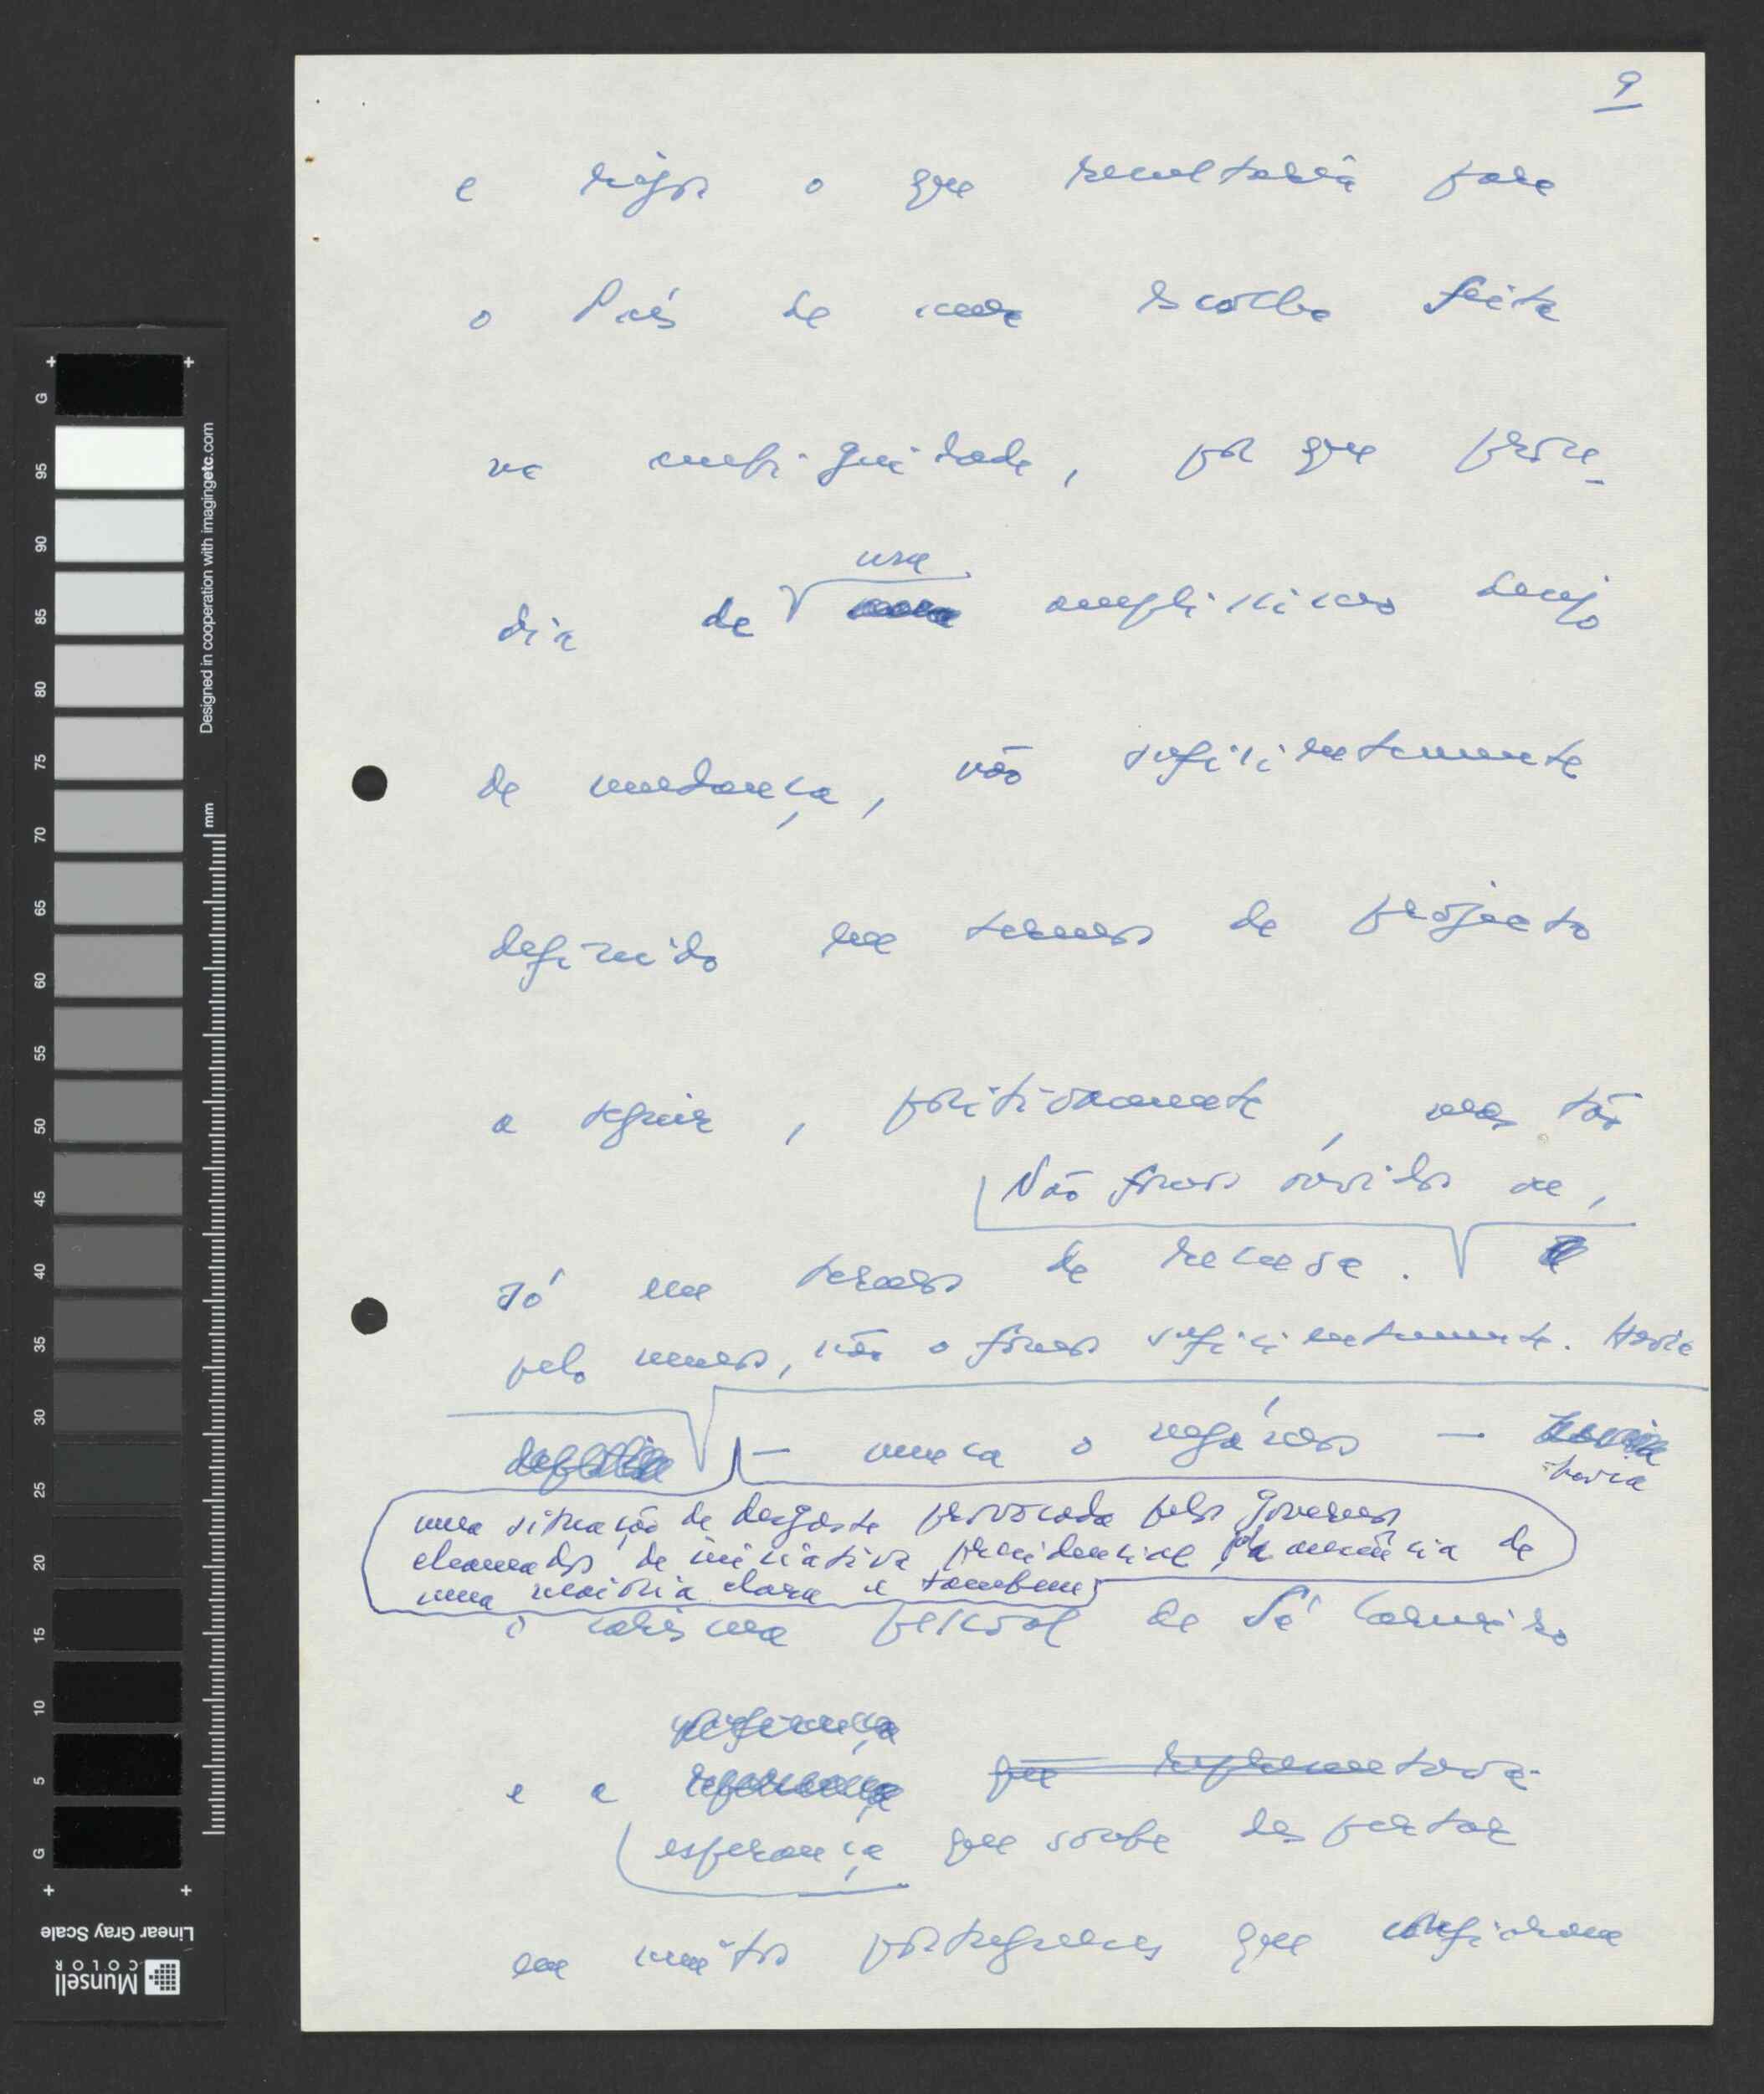 9
e rigor o que resultaria para
o País de uma escolha feita
na ambiguidade, por que proce-
dia de
um
amplíssimo desejo
de mudança, não suficientemente
definido em termos de projecto
a seguir, positivamente, mas tão
só em termos de recusa.
Não fomos ouvidos ou,
pelo menos, não o fomos suficientemente. Havia
— nunca o negámos —
havia
uma situação de desgaste provocada pelos governos
chamados de iniciativa presidencial, pela ausência de
uma maioria clara e também
o carisma pessoal de Sá Carneiro
e a
que representava
esperança que soube despertar
em muitos portugueses que confiavam
G
95
90
85
80
75
70
65
60
55
50
45
40
35
30
25
20
15
10
5
G
Designed in cooperation with imagingetc.com
mm
Linear Gray Scale
Munsell
COLOR